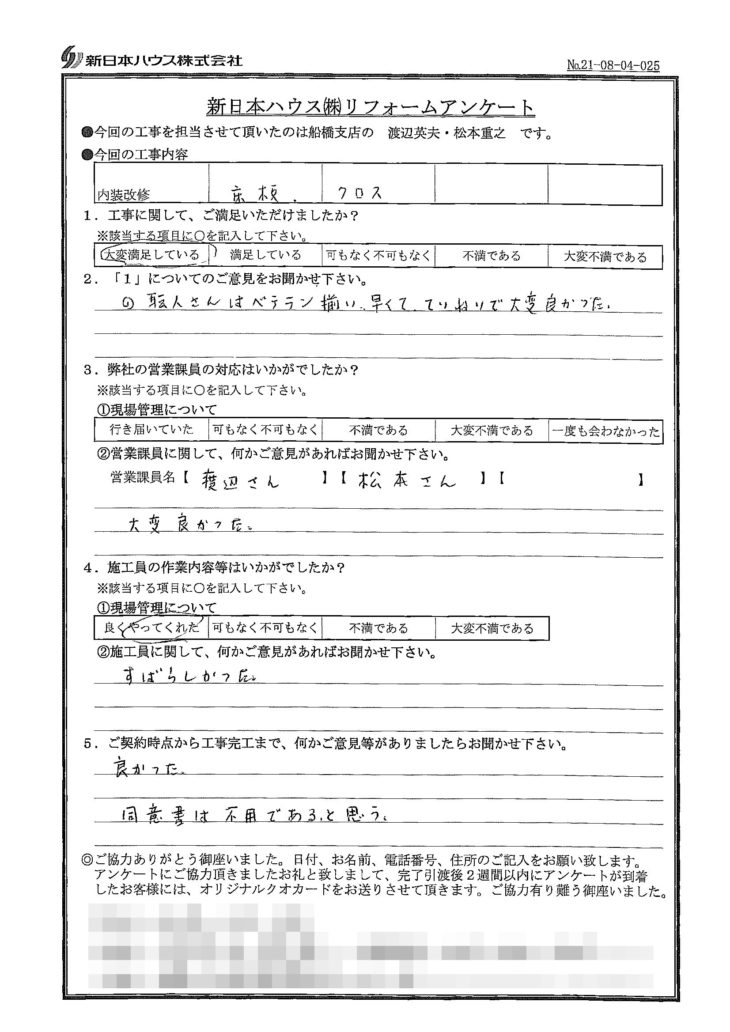 新日本ハウス株式会社
№21-08-04-025
新日本ハウス㈱リフォームアンケート
●今回の工事を担当させて頂いたのは船橋支店の 渡辺英夫・松本重之 です。
●今回の工事内容
内装改修 床板. クロス
1．工事に関して、ご満足いただけましたか？
※該当する項目に○を記入して下さい。
大変満足している 満足している 可もなく不可もなく 不満である 大変不満である
2．「1」についてのご意見をお聞かせ下さい。
職人さんはベテラン揃い、早くて、ていねいで大変良かった.
3．弊社の営業課員の対応はいかがでしたか？
※該当する項目に○を記入して下さい。
①現場管理について
行き届いていた 可もなく不可もなく 不満である 大変不満である 一度も会わなかった
②営業課員に関して、何かご意見があればお聞かせ下さい。
営業課員名【 渡辺さん 】【 松本さん 】【 】
大変良かった。
4．施工員の作業内容等はいかがでしたか？
※該当する項目に○を記入して下さい。
①現場管理について
良くやってくれた 可もなく不可もなく 不満である 大変不満である
②施工員に関して、何かご意見があればお聞かせ下さい。
すばらしかった。
5．ご契約時点から工事完工まで、何かご意見等がありましたらお聞かせ下さい。
良かった.
同意書は不用であると思う.
◎ご協力ありがとう御座いました。日付、お名前、電話番号、住所のご記入をお願い致します。
アンケートにご協力頂きましたお礼と致しまして、完了引渡後2週間以内にアンケートが到着
したお客様には、オリジナルクオカードをお送りさせて頂きます。ご協力有り難う御座いました。